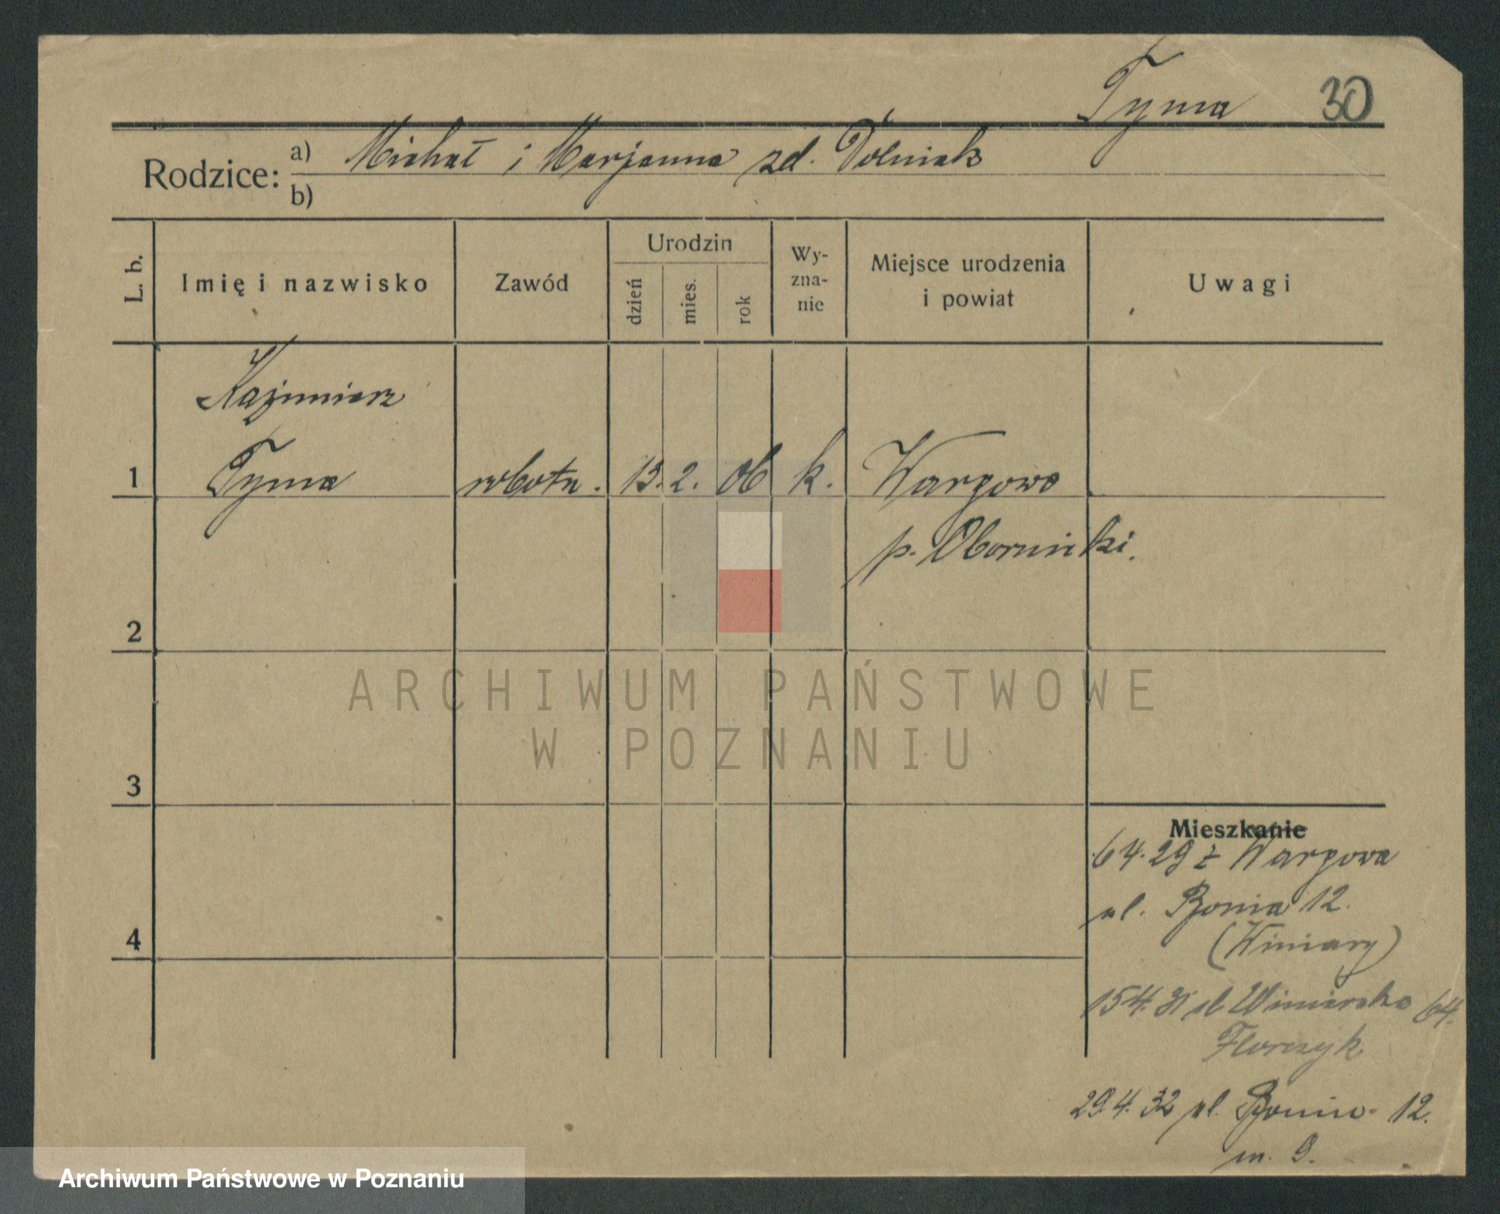 Tyma 30
Rodzice: a) Michał i Marjanna zd. Dolniak
b)
L. b. Imię i nazwisko Zawód Urodzin dzień mies. rok Wy-zna-nie Miejsce urodzenia i powiat Uwagi
Kazimierz
1 Tyma robotn. 13. 2. 06 k. Wargowo
p. Oborniki.
2
ARCHIWUM PAŃSTWOWE
W POZNANIU
3
Mieszkanie
6 4. 29 z Wargowa
ul. Bonin 12.
(Winiary)
4
15 4. 31 ul Winiarska 64.
Florczyk
29 4. 32 ul. Bonin 12.
m. 9.
Archiwum Państwowe w Poznaniu